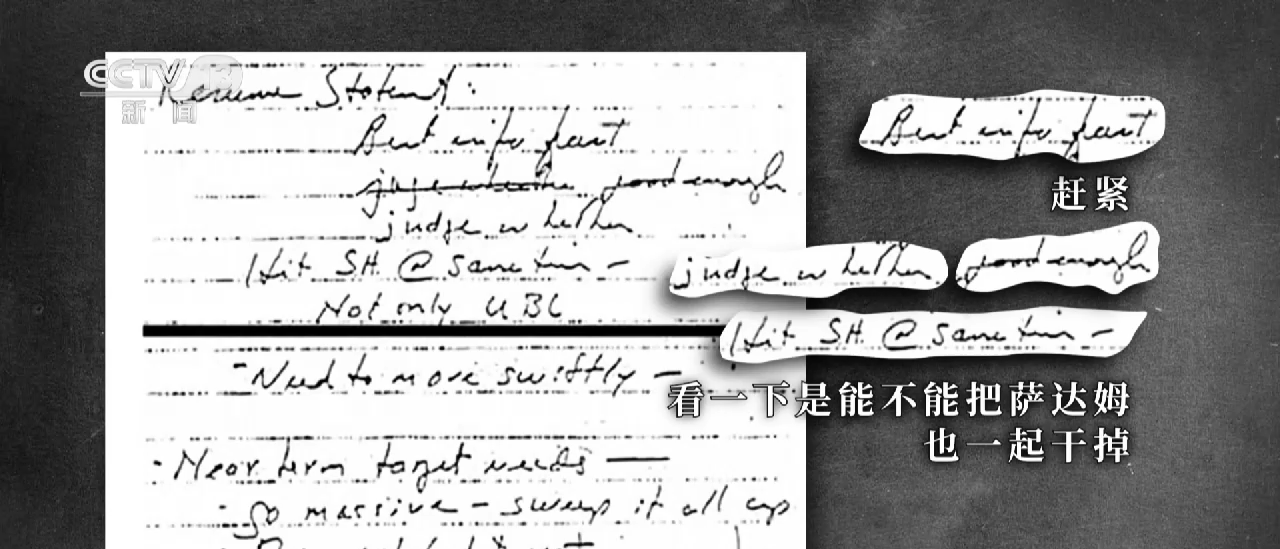 CCTV 13
新闻
Resume Statent:
Best info fast
judge whether good enough
judge whether
Hit S.H. @ same time -
Not only UBL
- Need to move swiftly -
- Near term target needs —
- go massive - sweep it all up
Best info fast
赶紧
judge whether good enough
Hit S.H. @ same time -
看一下是能不能把萨达姆
也一起干掉